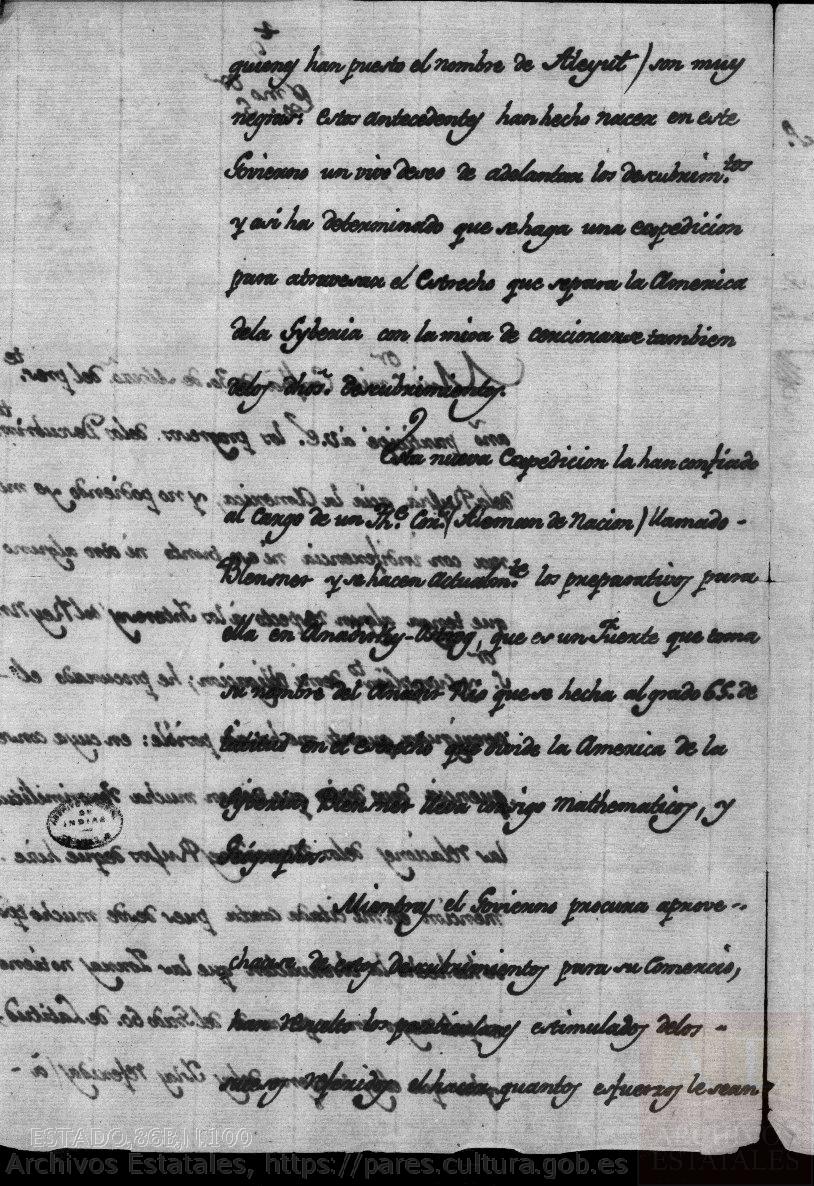 quienes han puesto el nombre de Aleyut) son muy
negras: estos antecedentes han hecho nacer en este
Govierno un vivo deseo de adelantar los descubrim.tos
y asi ha determinado que se haga una expedicion
para atravesar el Estrecho que separa la America
dela Syberia con la mira de cercionarse tambien
delos dhos. descubrimientos.
Esta nueva Expedicion la han confiado
al cargo de un The. Cor.(Aleman de Nacion) llamado -
Blensner y se hacen actualm.te los preparativos para
ella en Anadirsky-Ostrog, que es un Fuerte que toma
su nombre del Anadir Rio que se hecha al grado 65. de
latitud en el estrecho que divide la America de la
Syberia; Blensner lleva consigo Mathematicos, y
Geographos.
Mientras el Govierno procura aprove --
charse de estos descubrimientos para su Comercio,
han resuelto los particulares estimulados delos -
el hacer quantos esfuerzos le sean
ESTADO,86B,N.100
Archivos Estatales, https://pares.cultura.gob.es
ARCHIVOS
ESTATALES